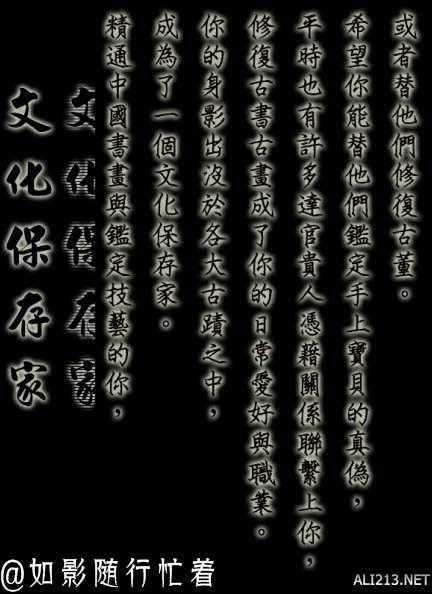 文化保存家
文化保存家
精通中國書畫與鑑定技藝的你，
成為了一個文化保存家。
你的身影出沒於各大古蹟之中，
修復古書古畫成了你的日常愛好與職業。
平時也有許多達官貴人憑藉關係聯繫上你，
希望你能替他們鑑定手上寶貝的真偽，
或者替他們修復古董。
@如影随行忙着
ALI213.NET